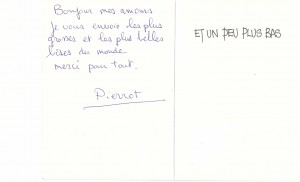 Bonjour mes amours
je vous envoie des plus
grosses et les plus belles
bises du monde
merci pour tout.
Pierrot
ET UN PEU PLUS BAS